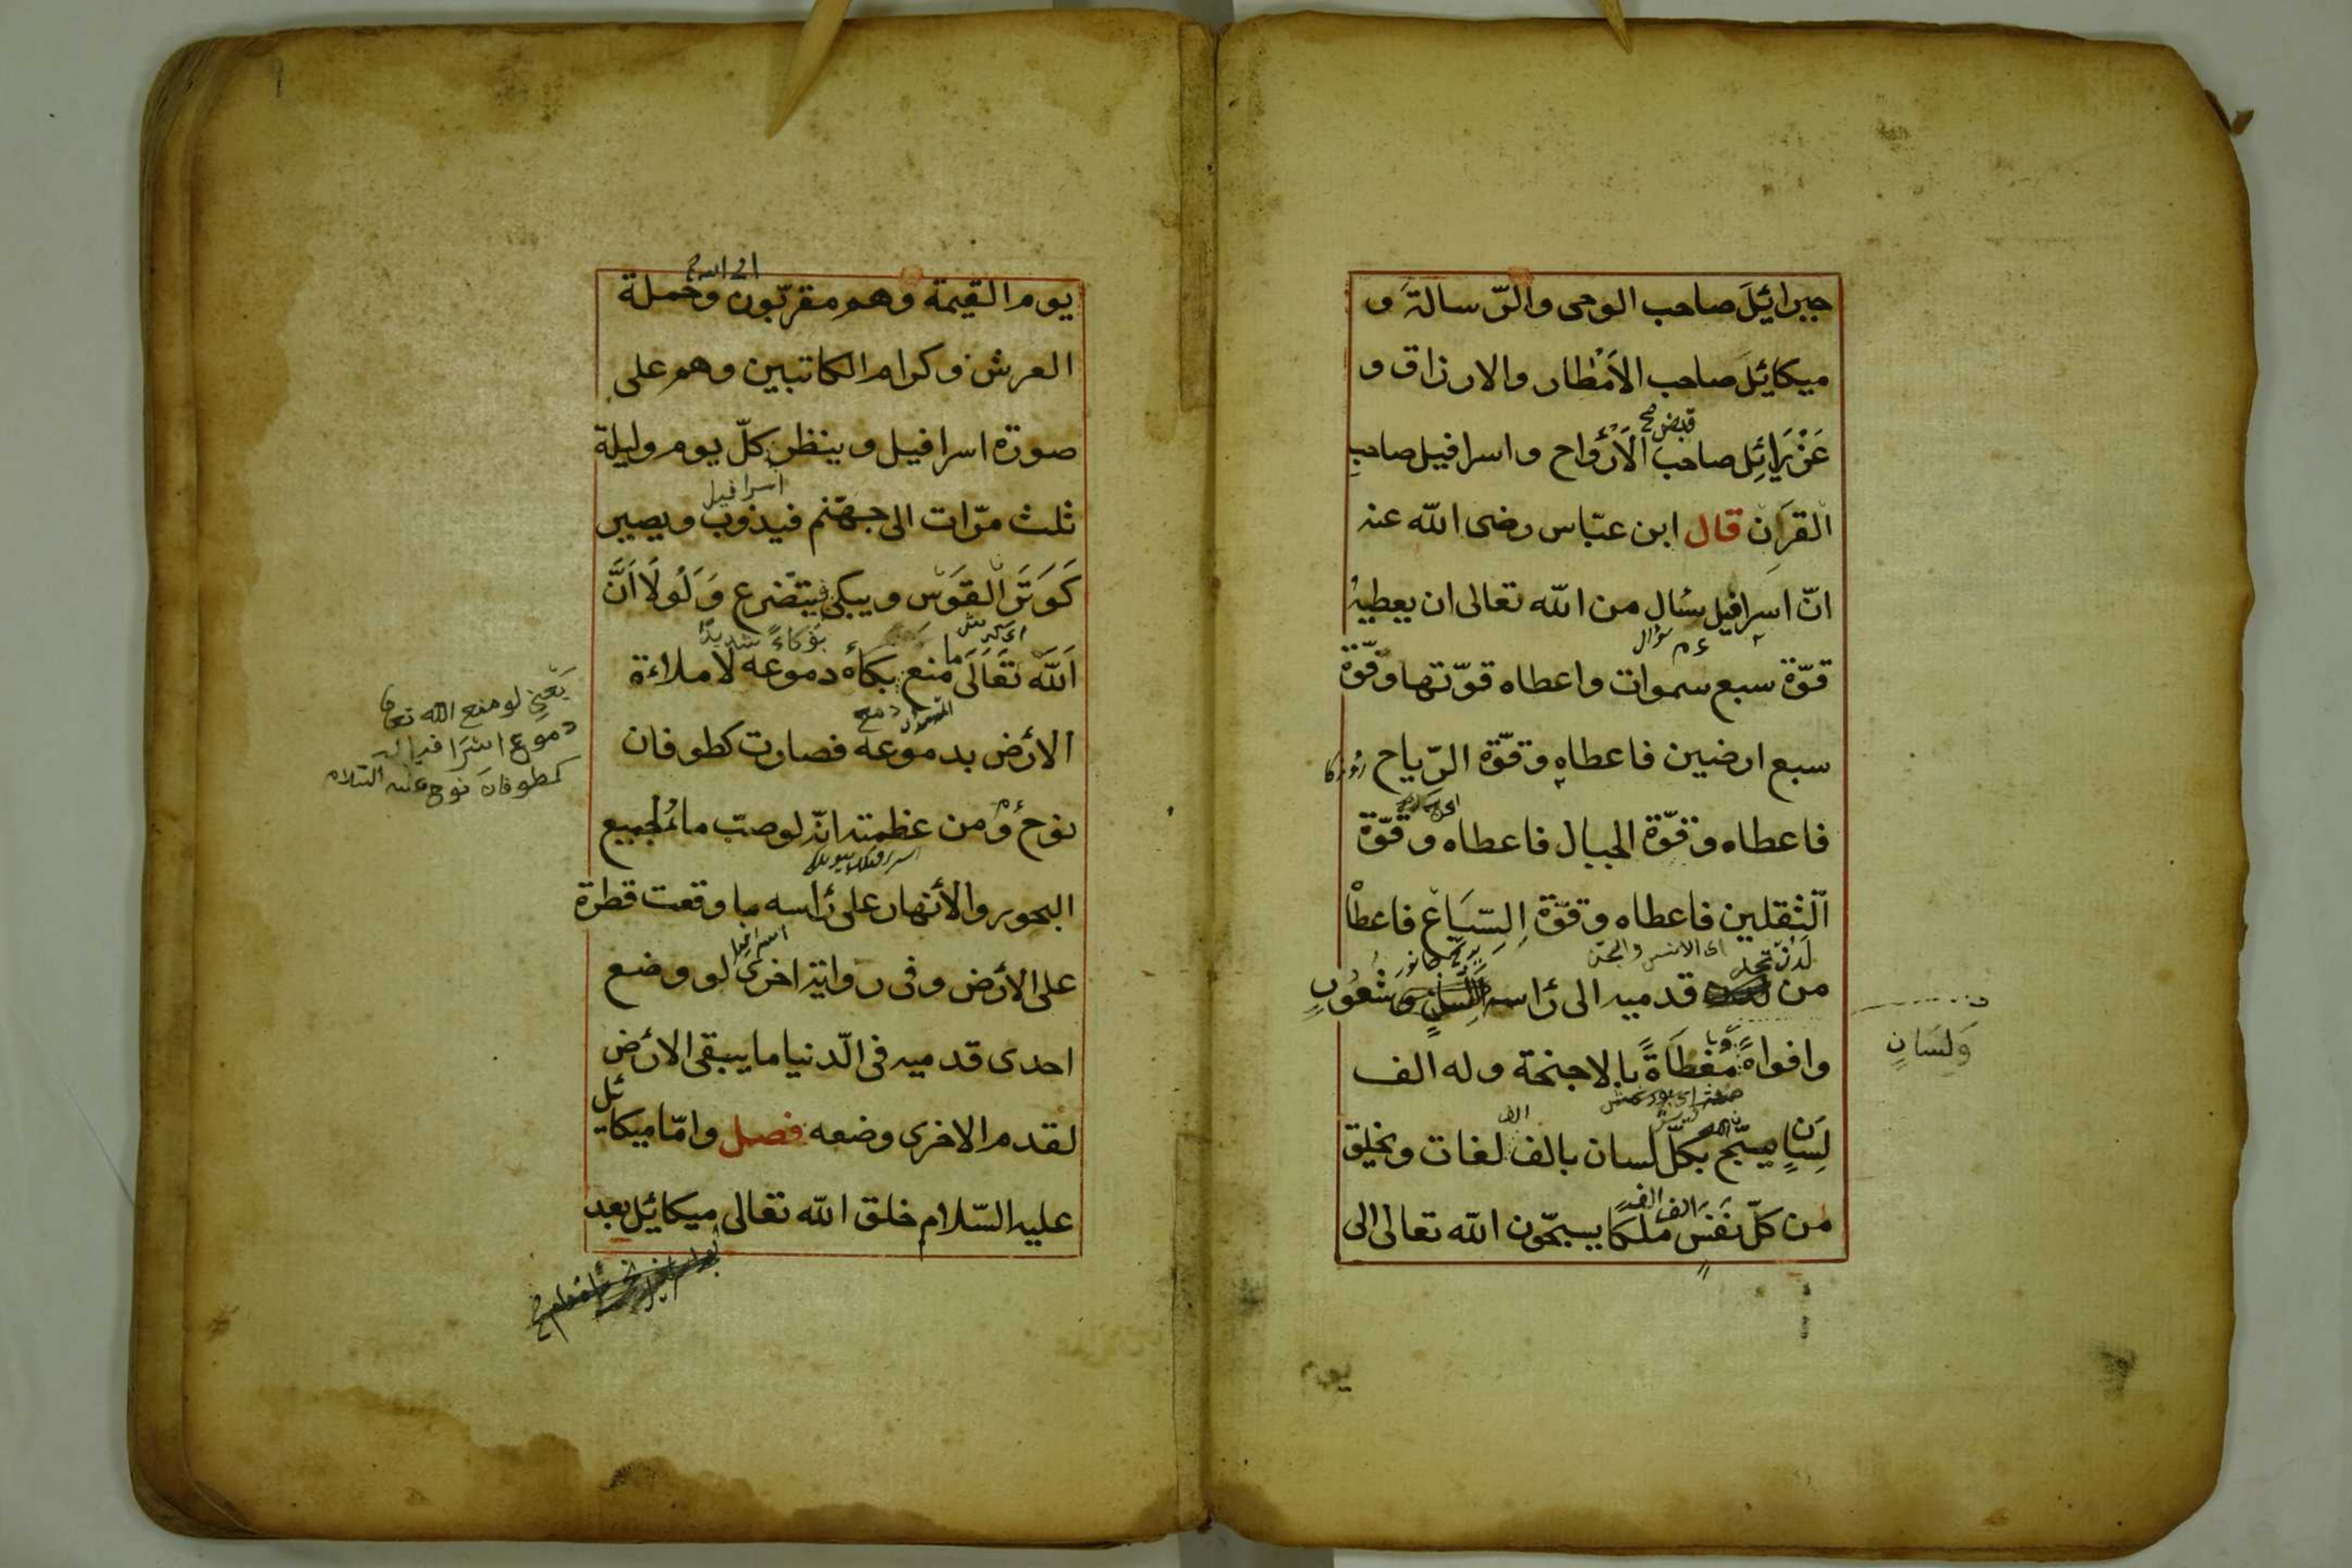 جبرائيلَ صاحب الوحى والرّسالة و
ميكائيلَ صاحب الاَمْطار والارزاق و
قبض صح
عَزْرَائِل صاحب الاَرْواح واسرافيل صاحب
القرَان قال ابن عبّاس رضى الله عنه
انّ اسرافيل سئال من الله تعالى ان يعطيهُ
سؤال
قوّة سبع سموات واعطاه قوّتها وقوّة
سبع ارضين فاعطاه وقوّة الرّياح
فاعطاه وقوّة الجبال فاعطاه وقوّة
الّثقلين فاعطاه وقوّة السّباع فاعطاْ
اى الانس والجن
لَدُنْ تحت
من قدميه الى رأسه وشعُورٍ
وَلِسَانٍ
وافواهً مغطاةً بالاجنحة وله الف
الف
لِسَانٍ يسبّح بكلّ لسان بالف لغات ويخلق
الف الف
من كلّ نفَسٍ ملَكًا يسبحّون الله تعالى الى
يوم
يوم القيمة وهم مقربّون وحملة
العرش وكرام الكاتبين وهم على
صورة اسرافيل وينظر كلّ يوم وليلة
اسرافيل
ثلث مرّات الى جهنّم فيذوب ويصير
كَوَتَرِ الْقَوَسْ ويبكى فيتضّرع وَلَوْلَا اَنَّ
بؤكاءً شديدًا
اَللّه تَعَالَى ما منع بكاءُ دموعه لاملاءة
يَعْنِى لو منع الله تعا
دموع اسْرَافيل
كطوفان نوح عليه السّلام
دمع
الاْرَض بدموعه فصارت كطوفان
نوح ومن عظمته انّه لو صبّ ماءُ لجميع
البحور والأنهار على رأسه ما وقعت قطرة
على الأرض وفى رواية اخرى لو وضع
احدى قدميه فى الّدنيا ما يبقى الارْض
لقدم الاخرى وضعه فصل وامّا ميكائل
عليه السّلام خلق الله تعالى ميكائيل بعد